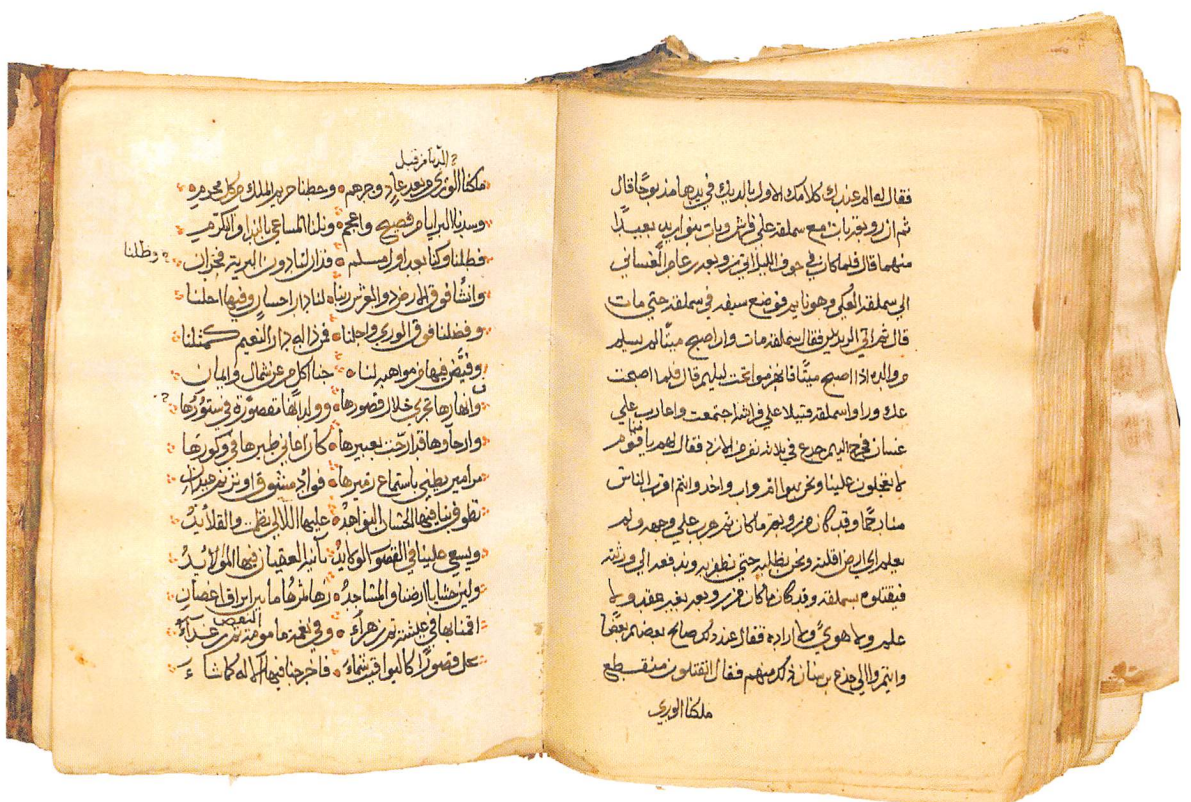 فقال له الم عندك كلامك الاول بالديك في يدها مذبوحا قال
ثم ان رويعد بات مع سملقة على فراش وبات بنو ابيه بعيدا
منهما قال فلما كان في جوف الليل اتى رويعد بن عامر الغساني
الى سملقة العكي وهو نايم فوضع سيفه في سملقة حتى مات
قال ثم اتى فقال سملقة مات وان اصبح ميتا لم يسلم
والله اذا اصبح ميتا قال فلما اصبحت
عك وراوا سملقة قتيلا على فراشه اجتمعت واعاديت على
غسان فخرج اليهم جذع في ثلاثة نفر من الازد فقال لهم يا قوم
لا تعجلون علينا ونحن بنوا واب واحد وانتم اقرب الناس
منا رحما وقد كان من رويعد ما كان ثم هرب على وجهه ولم
يعلم اي ارض اقلته ونحن نطلبه حتى نظفر به وندفعه الى ورثته
فيقتلوه بسملقة وقد كان ما كان من رويعد بغير عقد ولا
علم ولا هوى ولا ارادة فقال عند ذلك صالح بعضهم بعضا
وانتمروا الى جذع بن سنان في ذلك منهم فقال اتقتلون منقطع
ملكنا الورى
الدنيا من قبل
ملكنا الورى من بعد عاد وجرهم وحطنا حريم الملك من كل مجرم
وسدنا البرايا من فصيح واعجم ونلنا المساعي بالندا والتكرم
فطلنا وكنا بعد اول مسلم فذان لنا دون البرية فخران
وظلنا
وانشا فوق الارض ذو العرش ربنا لنا دار احسان وفيها احلنا
وفضلنا فوق الورى واحلنا فمن ذا له دار النعيم كمثلنا
وقيض فيها من مواهبه لنا جنا كل من عن شمال وايمان
وانهارها تجري خلال قصورها وولدانها مقصورة في ستورها
وارجاؤها قد ارجت بعبيرها كان اغاني طيرها في وكورها
مزامير يطبي باستماع زميرها فؤاد مشوق او ترنم عيدان
تطوف بنا فيها الحسان النواهد عليها اللآلي نظمت والقلائد
ويسعى علينا في القصور الولايد بآنية العقيان فيها الموائد
وليس ارضنا والمشاجد زهاهما ما بين ايراق اغصان
النقص
اقمنا بها في عيشة ثم زهراء وفي نعمة مامونة ثم غداء
على قصورا كاليواقيت شماء فاخرجنا فيها الاله كما شاء